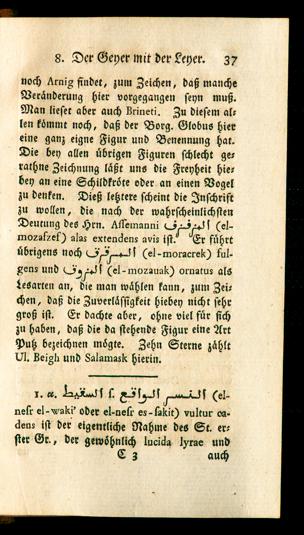 8. Der Geyer mit der Leyer. 37
noch Arnig findet, zum Zeichen, daß manche
Veränderung hier vorgegangen seyn muß.
Man lieset aber auch Brineti. Zu diesem al-
len kömmt noch, daß der Borg. Globus hier
eine ganz eigne Figur und Benennung hat.
Die bey allen übrigen Figuren schlecht ge-
rathne Zeichnung läßt uns die Freyheit hie-
bey an eine Schildkröte oder an einen Vogel
zu denken. Dieß letztere scheint die Inschrift
zu wollen, die nach der wahrscheinlichsten
Deutung des Hrn. Assemanni المزفزف (el-
mozafzef) alas extendens avis ist. Er führt
übrigens noch المرقزق (el-moracrek) ful-
gens und المزوق (el-mozauak) ornatus als
Lesarten an, die man wählen kann, zum Zei-
chen, daß die Zuverlässigkeit hiebey nicht sehr
groß ist. Er dachte aber, ohne viel für sich
zu haben, daß die da stehende Figur eine Art
Putz bezeichnen mögte. Zehn Sterne zählt
Ul. Beigh und Salamask hierin.
1. α. النسر الواقع ſ. السقيط (el-
nesr el-waki' oder el-nesr es-sakit) vultur ca-
dens ist der eigentliche Nahme des St. er-
ster Gr., der gewöhnlich lucida lyrae und
C 3 auch